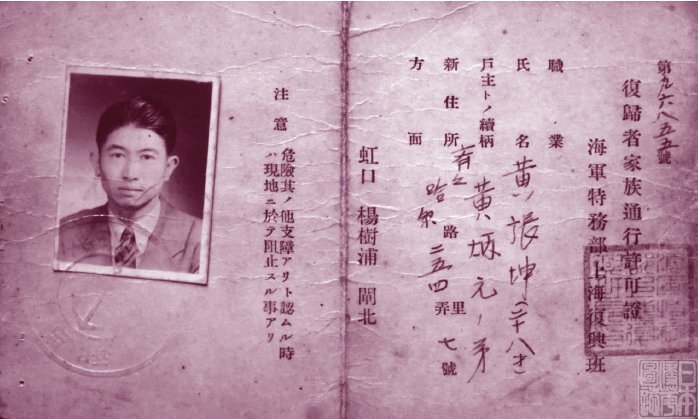 第九六八五五號
復歸者家族通行許可證
海軍特務部上海復興班
職業
氏名 黃張坤(二十八才)
戶主トノ續柄 黃炳元ノ弟
新住所 哈爾路二五四弄里七號
方面
虹口 楊樹浦 閘北
注意 危險其ノ他支障アリト認ムル時
ハ現地ニ於テ阻止スル事アリ